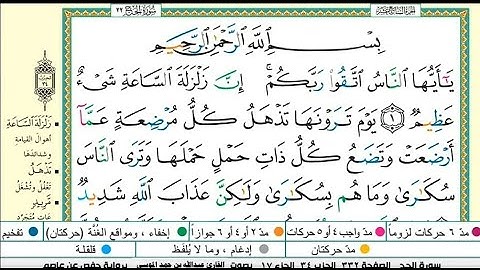 سُورَةُ الحَجِّ ٢٢
بِسْمِ ٱللَّهِ ٱلرَّحْمَٰنِ ٱلرَّحِيمِ
يَٰٓأَيُّهَا ٱلنَّاسُ ٱتَّقُوا۟ رَبَّكُمْ ۚ إِنَّ زَلْزَلَةَ ٱلسَّاعَةِ شَىْءٌ
عَظِيمٌ ١ يَوْمَ تَرَوْنَهَا تَذْهَلُ كُلُّ مُرْضِعَةٍ عَمَّآ
أَرْضَعَتْ وَتَضَعُ كُلُّ ذَاتِ حَمْلٍ حَمْلَهَا وَتَرَى ٱلنَّاسَ
سُكَٰرَىٰ وَمَا هُم بِسُكَٰرَىٰ وَلَٰكِنَّ عَذَابَ ٱللَّهِ شَدِيدٌ
٣٤
زَلْزَلَةَ السَّاعَةِ
أهوالَ القيامةِ
وشدائدَها
تَذْهَلُ
تَغْفُلُ وتُشْغَلُ
مدّ ٦ حركات لزوماً مدّ واجب ٤ أو ٥ حركات مدّ ٢ أو ٤ أو ٦ جوازاً إخفاء، ومواقع الغُنَّة (حركتان) تفخيم
مدّ حركتان إدغام ، وما لا يُلفَظ قلقلة
سورة الحج الصفحة ٣٣٢ الحزب ٣٤ الجزء ١٧ بصوت القارئ عبدالله بن حمد الموسى برواية حفص عن عاصم